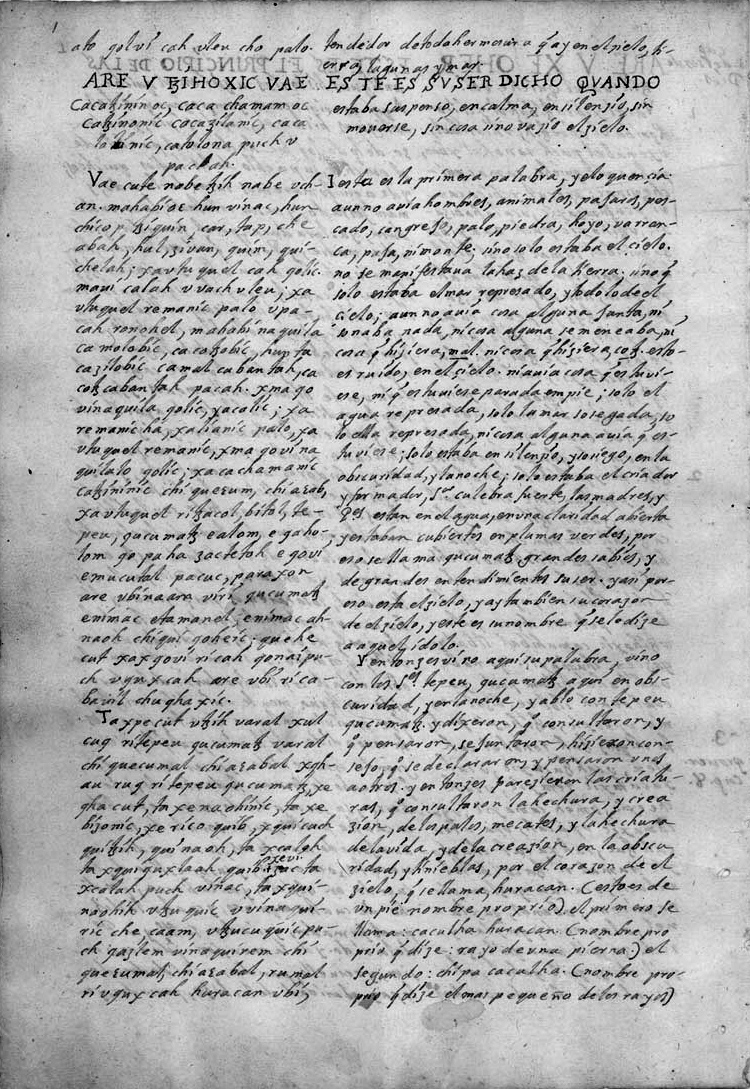 ato qolvi cah vleu cho palo.
ARE V ꜩIHOXIC VAE
Cacaꜩinin oc, caca chamam oc
Caꜩinonic cacaꜫilanic, caca
lolinic, catolona puch v
pa cah.
Vae cute nabe tzih nabe vch-
an. mahabioc hun vinac, hun
chicop ꜩiquin, car, tap, che
abah, hul, ꜫivan, quim, qui-
chelah; xa vtuquel cah golic.
mavi calah v vach vleu; xa
vtuquel remanic palo v pa-
cah ronohel, mahabi naquila
ca molobic, ca cotzobic, hunta
ca ꜫilobic ca mal cabantah, ca
cotz cabantah pacah. xma go
vinaquila golic, yacalic; xa
remanic ha, xalianic palo, xa
vtuquel remanic, xma govi na
quilalo golic; xa cachamanic
caꜩininic chi quecum, chi aꜫab,
xa vtuquel ri tzacol, bitol, te-
peu, qucumatz e alom, e qaho-
lom go pa ha zactetoh e govi
e mucutal pa cuc, pa raxon
are vbinaam vi ri qucumatz
e nimac etamanel, e nimac ah-
naoh chi qui goheic; quehe
cut xax govi ri cah, gonai pu-
ch v qux cah are v bi ri ca-
bavil chughaxic.
Ta xpe cut v tzih varal xul
cuq ri tepeu qucumatz varal
chi quecumal chi aꜫabal xgh-
au ruq ri tepeu qucumatz, xe
gha cut, ta xe naohinic, ta xe
bizonic, xe rico quib, xqui cuch
qui tzih, qui naoh, ta xcalah
ta xqui quxlaah quib xevi zac ta
xcalah puch vinac, ta xqui-
naohih v tzuquic v vinaqui-
ric che caam, v tzucuquic pu-
ch gazlem vinaquirem chi
quecumatz chi aꜫabal, rumal
ri v qux cah huracan v bi,
tendedor de toda hermosura q̃ ay en el zielo, ti-
erra, lagunas y mar.
ESTE ES SV SER DICHO QVANDO
estaba suspenso, en calma, en silenzio, sin
moverse, sin cosa sino vazio el zielo.
I esta es la primera palabra, y eloquenzia.
aun no avia hombres, animales, pajaros, pes-
cado, cangrejo, palo, piedra, hoyo, varran-
ca, paja, ni monte, sino solo estaba el cielo.
no se manifestava la haz de la tierra. sino q̃
solo estaba el mar represado, y todo lo de el
cielo; aun no avia cosa alguna junta, ni
sonaba nada, ni cosa alguna se meneaba, ni
cosa q̃ hiziera, mal. ni cosa q̃ hiziera, cotz. esto
es ruido, en el zielo. ni avia cosa q̃ estuvi-
ese, ni q̃ estuviese parada en pie; solo el
agua represada, solo la mar sosegada, so
lo ella represada, ni cosa alguna avia q̃ es-
tuviese; solo estaba en silenzio, y sosiego, en la
obscuridad, y la noche; solo estaba el criador
y formador, Sor. culebra fuerte, las madres, y
Pes. estan en el agua, en una claridad abierta
y estaban cubiertos en plumas verdes, por
eso se llama qucumatz grandes sabios, y
de grandes entendimientos su ser. y asi por-
eso esta el zielo, y ay tambien su corazor
de el zielo, y este es su nombre q̃ se le dize
a aquel ídolo.
Y entonzes vino aqui su palabra, vino
con los Sres. tepeu, qucumatz aqui en obs-
curidad, y en la noche, y ablo con tepeu
qucumatz. y dixeron, q̃ consultaron, y
q̃ pensaron, se juntaron, hizieron con-
sejo, q̃ se declararon y pensaron unos
a otros. y entonzes parezieron las criatu-
ras, q̃ consultaron la hechura, y crea
zion, de los palos, mecates, y la hechura
de la vida, y de la creazion, en la obscu
ridad, y tinieblas, por el corazon de el
zielo, q̃ se llama, huracan. (esto es de
un pie nombre proprio). el primero se
llama: caculha huracan. (nombre pro
prio q̃ dize: rayo de una pierna.) el
segundo: chipa caculha. (nombre pro-
prio q̃ dize el mas pequeño de los rayos)